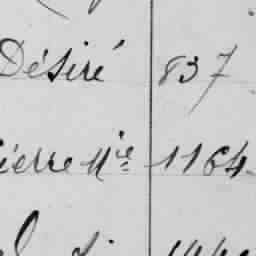 Désiré 837
ierre Mie 1164